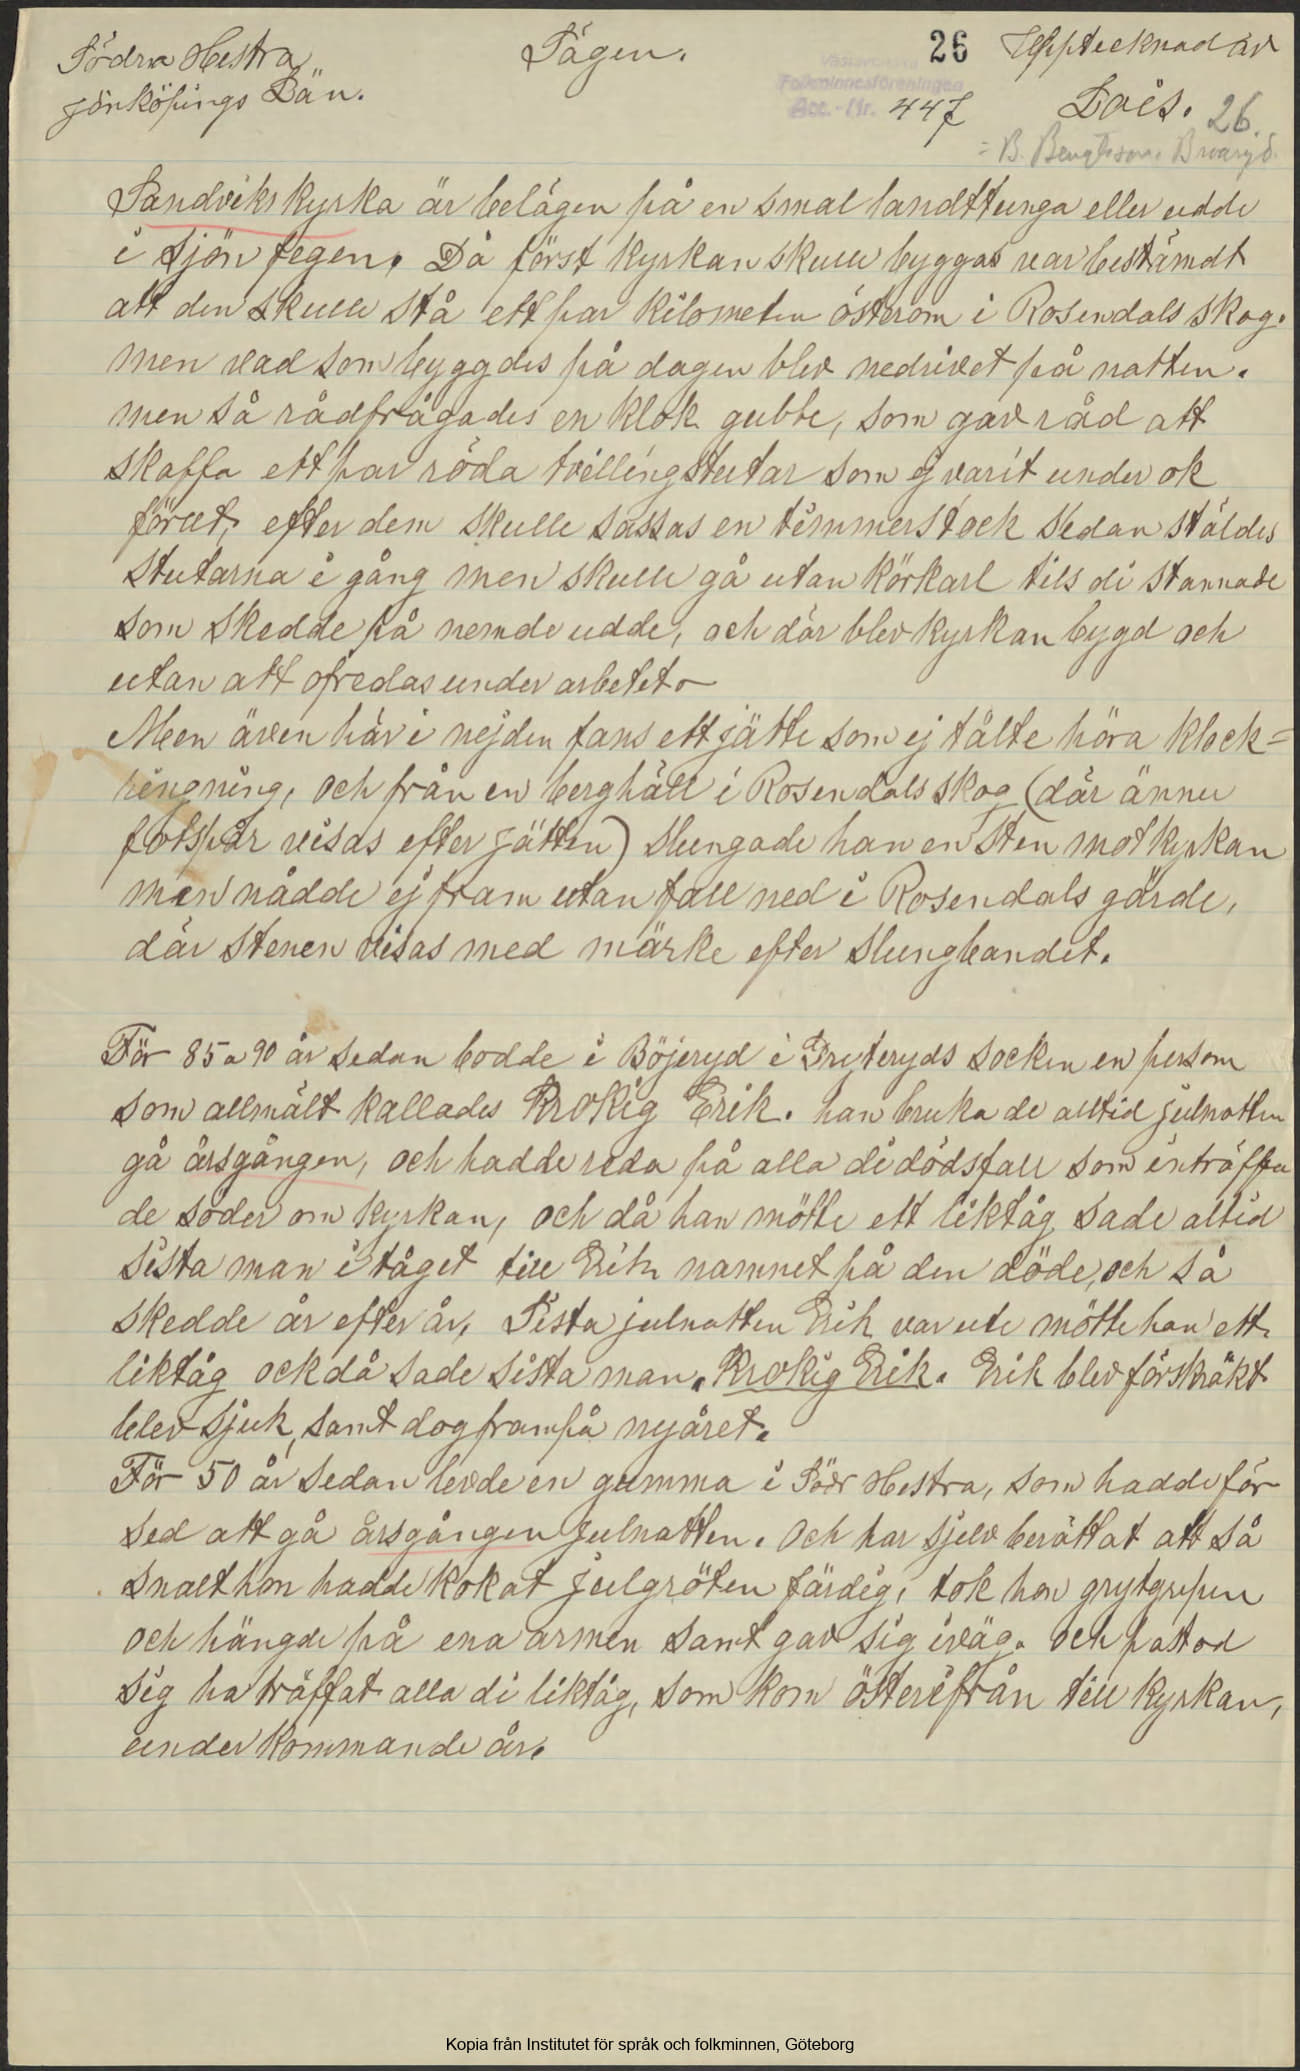 Södra Hestra
Jönköpings Län.
Sägen.
26
Upptecknad av
Lois.
26.
Västsvenska
Folkminnesföreningen
Acc.-Nr. 447
= B. Bengtsson,
Sandviks kyrka är belägen på en smal landttunga eller udde
i sjön fegen. Då först kyrkan skulle byggas var bestämdt
att den skulle stå ett par kilometer österom i Rosendals skog.
men vad som byggdes på dagen blev nedrivet på natten.
men så rådfrågades en klok gubbe, som gav råd att
skaffa ett par röda tvillingstutar som ej varit under ok
förut, efter dem skulle sassas en timmerstock sedan stäldes
stutarna i gång men skulle gå utan körkarl tils di stannade
som skedde på nemde udde, och där blev kyrkan bygd och
utan att ofredas under arbetet
Men även här i nejden fans ett jätte som ej tålte höra klock=
ringning, och från en berghäll i Rosendals skog (där ännu
fotspår visas efter jätten) slungade han en sten mot kyrkan
men nådde ej fram utan fall ned i Rosendals gärde,
där stenen visas med märke efter slungbandet.
För 85 a 90 år sedan bodde i Böjeryd i Gryteryds socken en person
som allmält kallades Krokig Erik. han bruka de alltid julnatten
gå årsgången, och hadde reda på alla di dödsfall som inträffa
de söder om kyrkan, och då han mötte ett liktåg sade altid
sista man i tåget till Erik namnet på den döde, och så
skedde år efter år, Sista julnatten Erik var ute mötte han ett
liktåg ock då sade sista man, Krokig Erik. Erik blev förskräkt
blev sjuk, samt dog frampå nyåret.
För 50 år sedan levde en gumma i Södr Hestra, som hadde för
sed att gå årsgången julnatten. Och har sjelv berättat att så
snalt hon hadde kokat julgröten färdig, tok hon grytgrepen
och hängde på ena armen samt gav sig iväg. och påstod
sig ha träffat alla di liktåg, som kom österifrån till kyrkan,
under kommande år.
Kopia från Institutet för språk och folkminnen, Göteborg